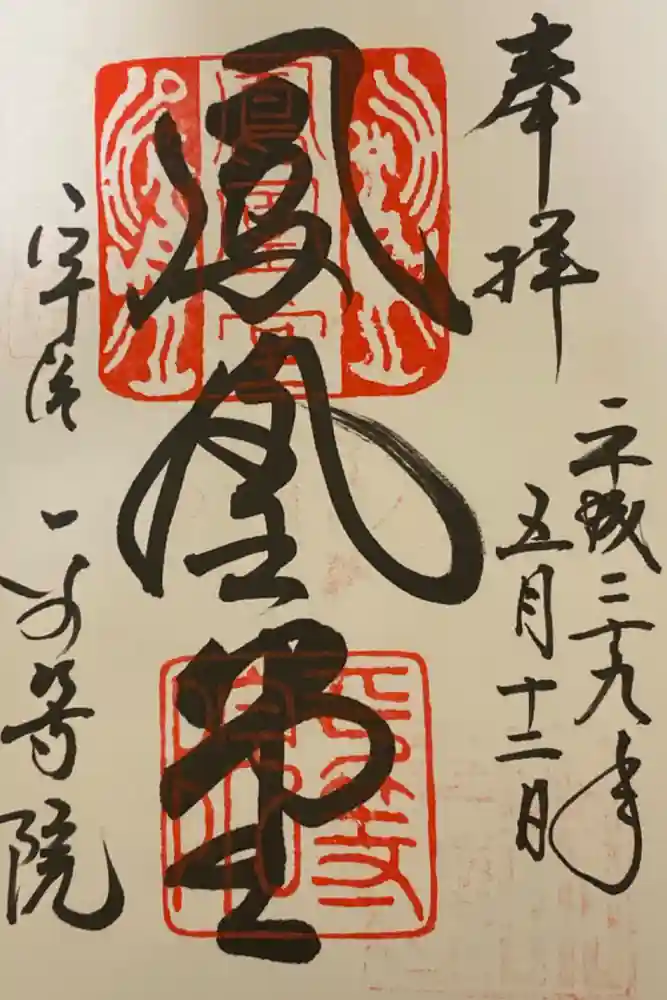 奉拝
平成二十九年
五月十二日
鳳凰堂
宇治
平等院